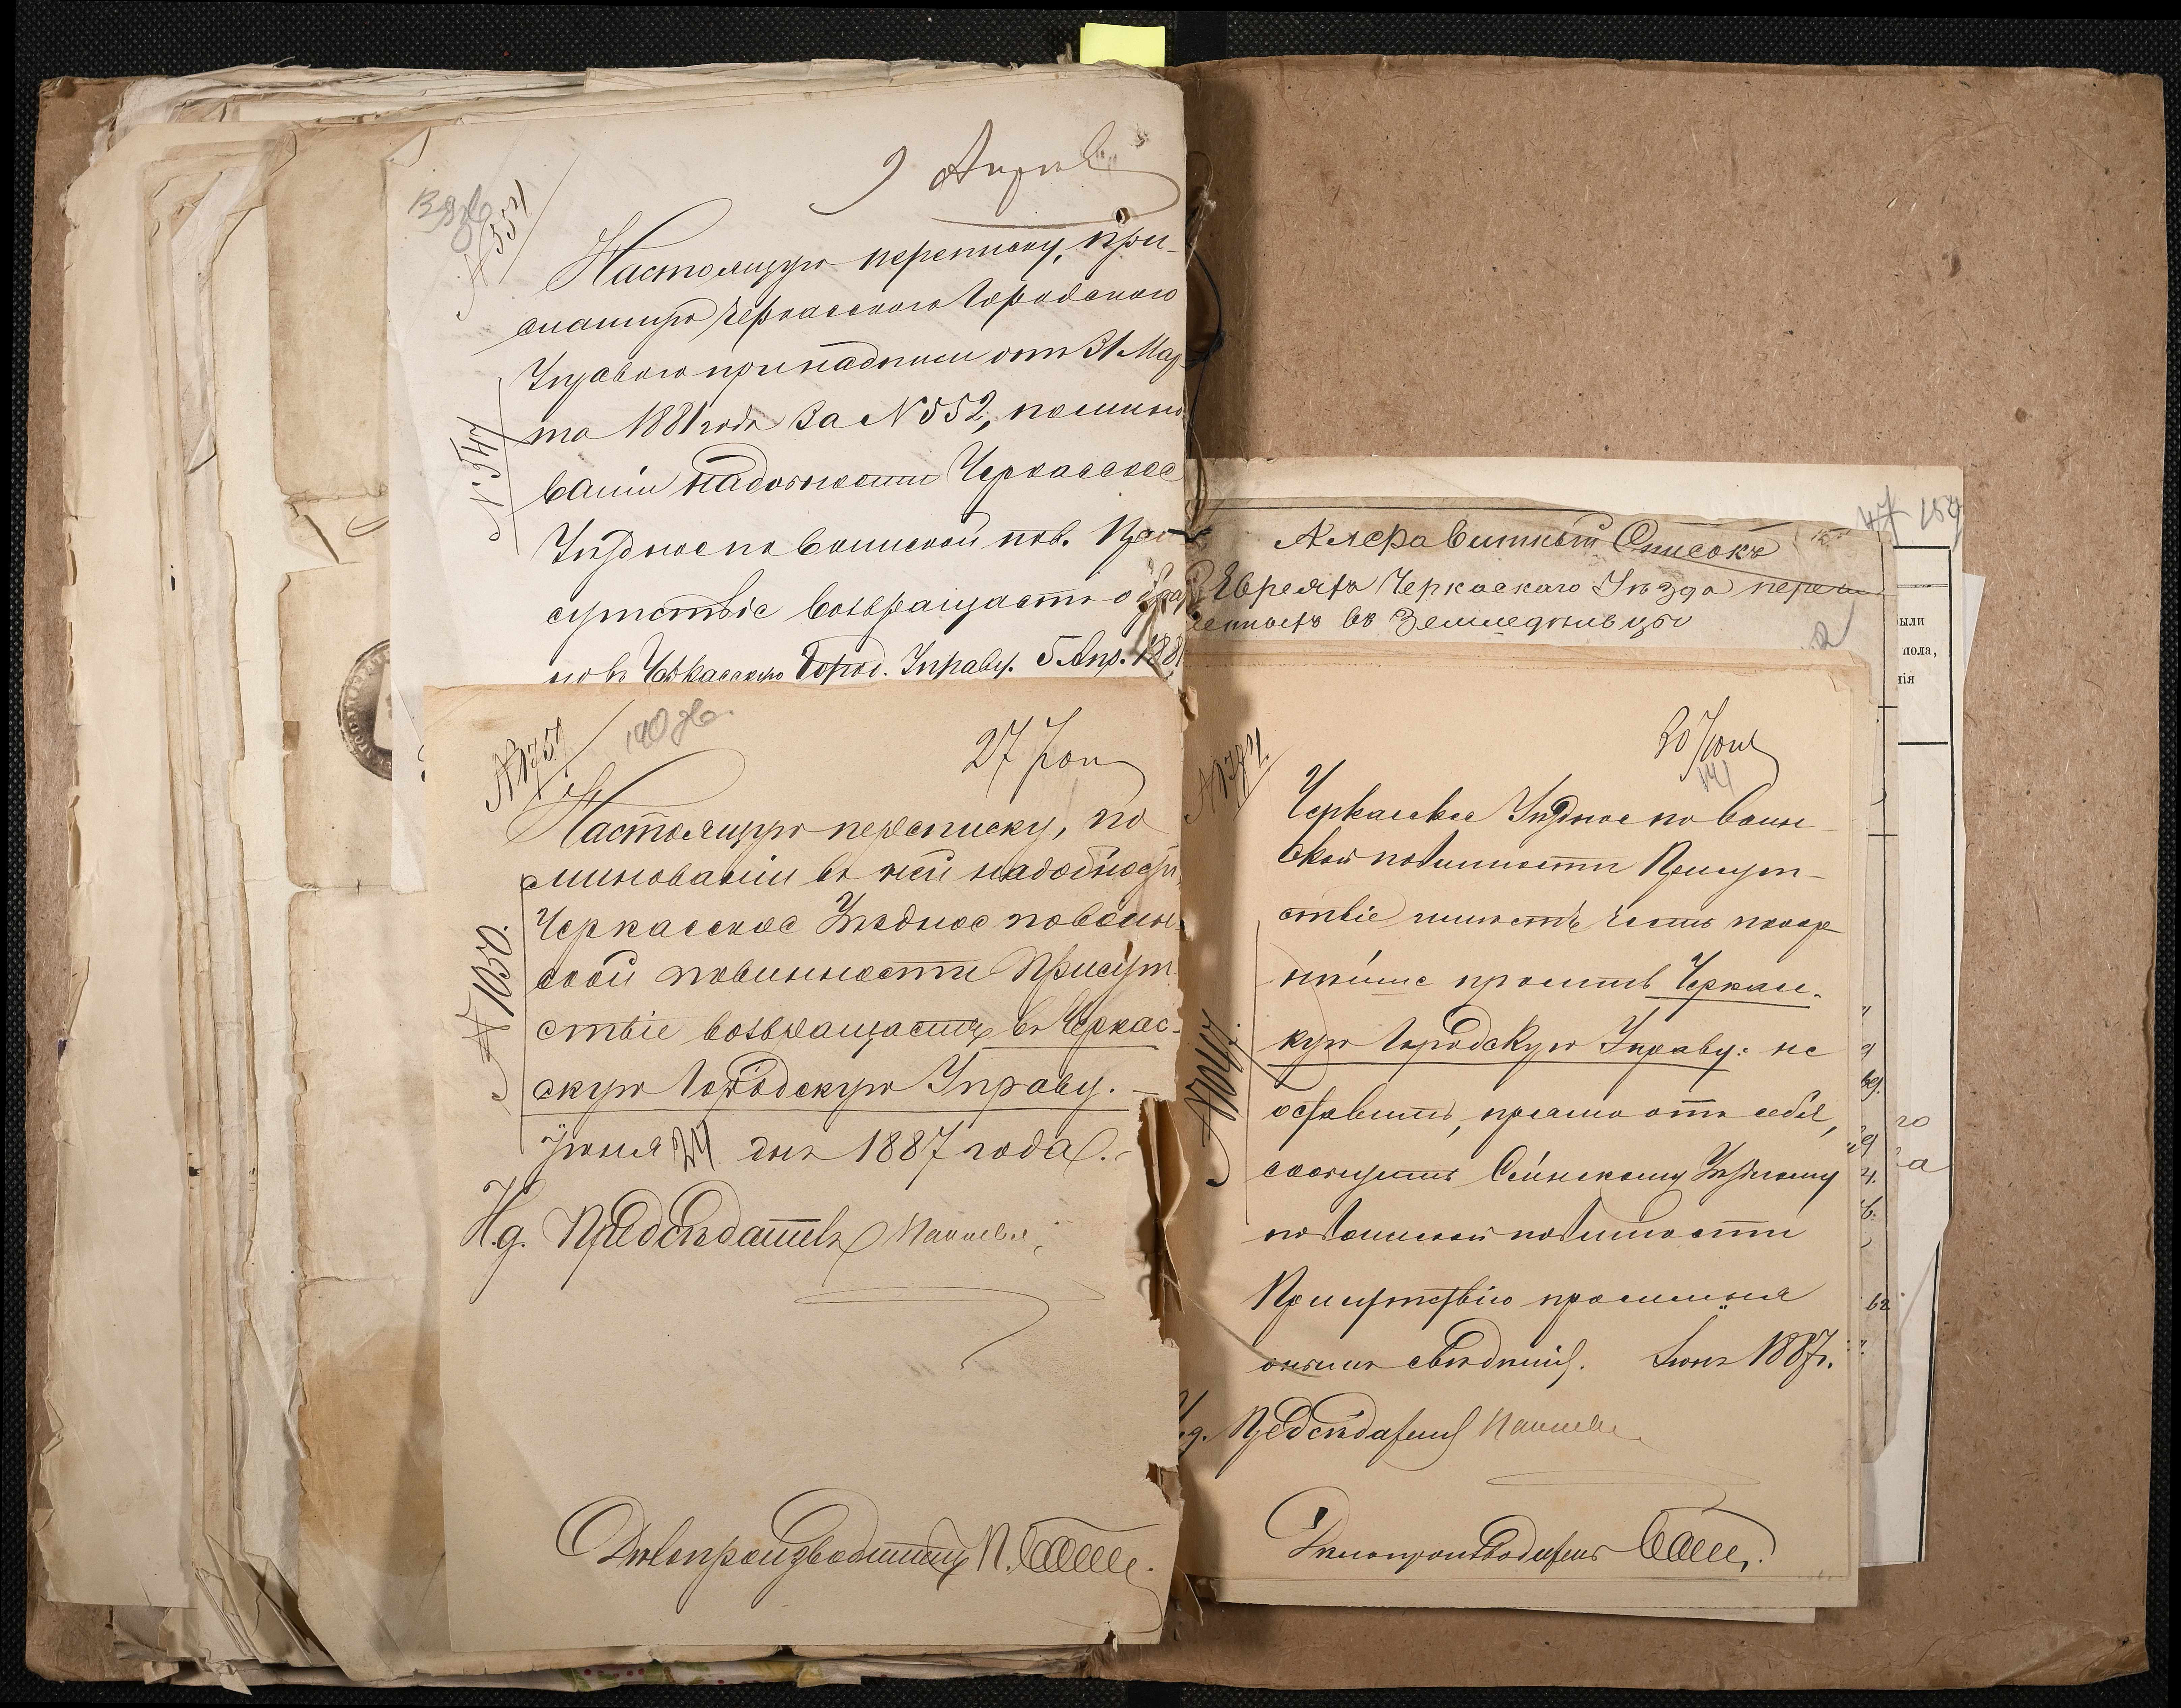 9 Апрѣл
139 об
№ 554
Настоящую переписку, при-
сланную Черкасскою Городскою
Управою при надписи отъ 31 Мар-
та 1881 года за № 552, по минно-
ваніи надобности Черкасское
Уѣздное по воинской пов. При-
сутствіе возвращаетъ обрат
но въ Черкасскую Город. Управу. 5 Апр. 1881
№ 547
№ 1751
140 об
27 Іюн
Настоящую переписку, по
минованіи въ ней надобности,
Черкасское Уѣздное по воин-
ской повинности Присут-
ствіе возвращаетъ въ Черкас-
скую Городскую Управу. —
Іюня 24 дня 1887 года.
№ 1050.
И.д. Предсѣдателя
Дѣлопроизводитель П.
Алфавитный Списокъ
Евреевъ Черкаскаго Уѣзда
въ Земледѣльцы
47 154
ыли
пола,
нія
20 Іюня
141
Черкасское Уѣздное по воин-
ской повинности Присут-
ствіе имѣетъ честь покор-
нѣйше просить Черкас-
кую Городскую Управу: не
оставить, прямо отъ себя,
сообщить Уѣздному
по воинской повинности
Присутствію просимыя
онымъ свѣдѣнія. Іюнь 1887 г.
И.д. Предсѣдателя
Дѣлопроизводитель